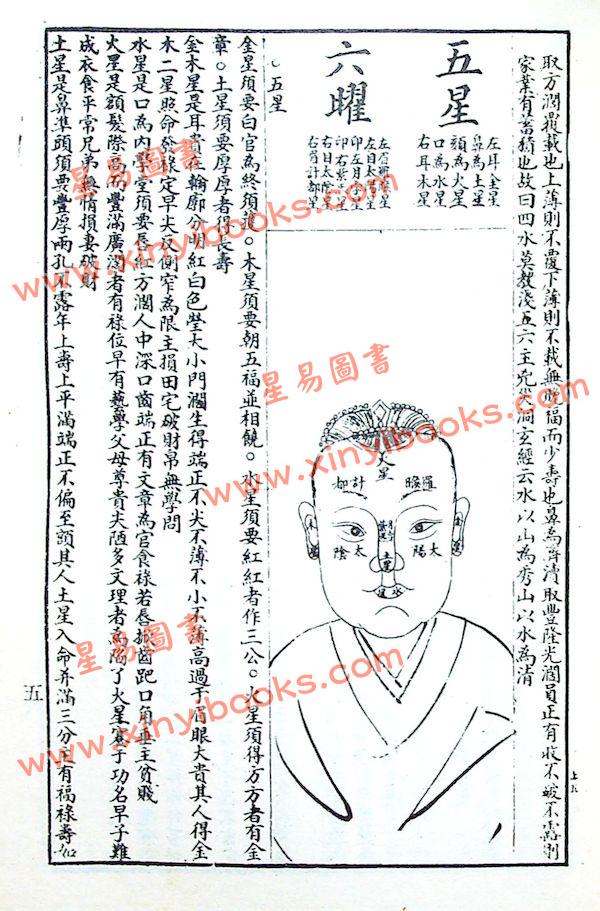 取方濶覆載也上薄則不覆下薄則不載無晚福而少壽也鼻為濟瀆取豐隆光濶員正有收不破不露則
家業有蓄積也故曰四水莫教淺五六主兇災洞玄經云水以山為秀山以水為清
五星
左耳金星
鼻為土星
額為火星
口為水星
右耳木星
六曜
左眉羅睺星
左目太陽星
印左月孛星
印右紫炁星
右目太陰星
右眉計都星
火星
羅睺
計都
太陽
太陰
土星
水星
。五星
金星須要白官為終須獲。木星須要朝五福並相饒。水星須要紅紅者作三公。火星須得方方者有金
章。土星須要厚厚者得長壽
金木星是耳貴在輪廓分明紅白色瑩大小門濶生得端正不尖不薄不小不薄高過于眉眼大貴其人得金
木二星照命發祿定早尖反側窄為限主損田宅破財帛無學問
水星是口為內學堂須要唇紅方濶人中深口齒端正有文章為官食祿若唇掀齒跎口角垂主貧賤
火星是額髮際高而豐滿廣濶者有祿位早有藝學父母尊貴尖陋多文理者為陷了火星蹇于功名早子難
成衣食平常兄弟無情損妻破財
土星是鼻準頭須要豐厚兩孔不露年上壽上平滿端正不偏至顫其人土星入命并滿三分主有福祿壽如
五
www.xinyibooks.com
星易圖書
www.xinyibooks.com
星易圖書
www.xinyibooks.com
星易圖書
www.xinyibooks.com